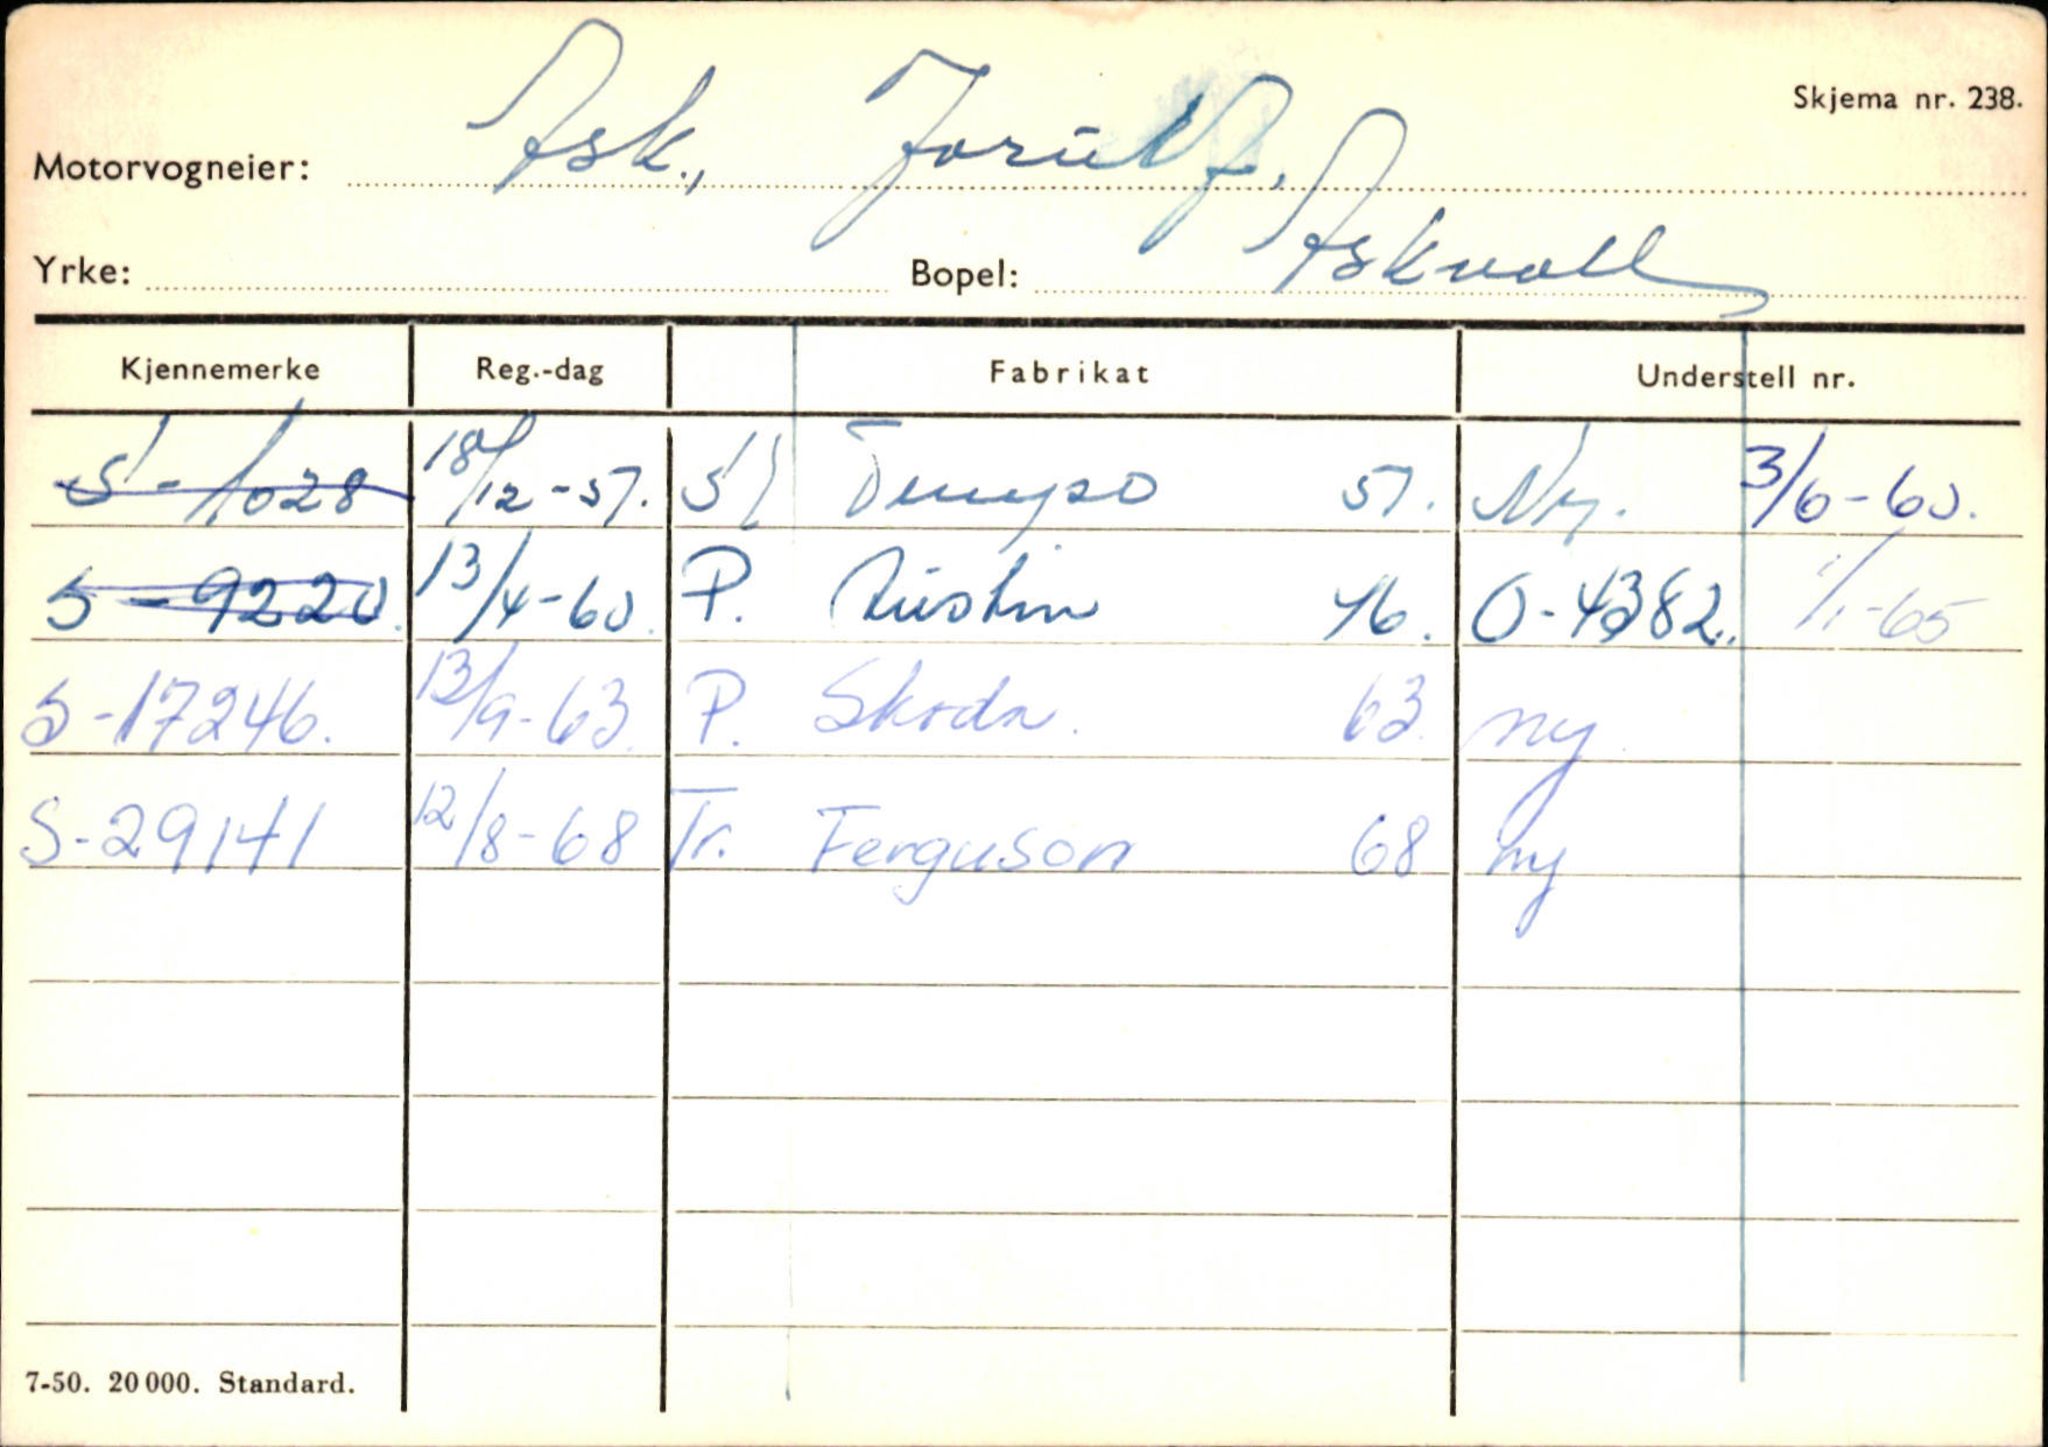 Skjema nr. 238.
Motorvogneier: Ask, Jorulf,
Yrke: Bopel: Askvoll
Kjennemerke Reg.-dag Fabrikat Understell nr.
S-1028 18/12-57. Tempo 57. Ny. 3/6-60.
S-9220. 13/4-60. P. Austin 46. O-4382. 1/1-65
S-17246. 13/9-63. P. Skoda. 63. ny.
S-29141 12/8-68 Tr. Ferguson 68 ny
7-50. 20 000. Standard.